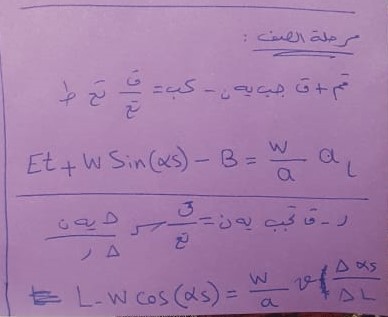 مرحلة الصف :
قم + ق جب يه ن - كب = ق/تج تج ط
Et + W Sin(αs) - B = W/a a L
ر - ق تجب يه ن = ق/تج سر Δ يه ن / Δ ر
L - W cos(αs) = W/a v Δαs/ΔL